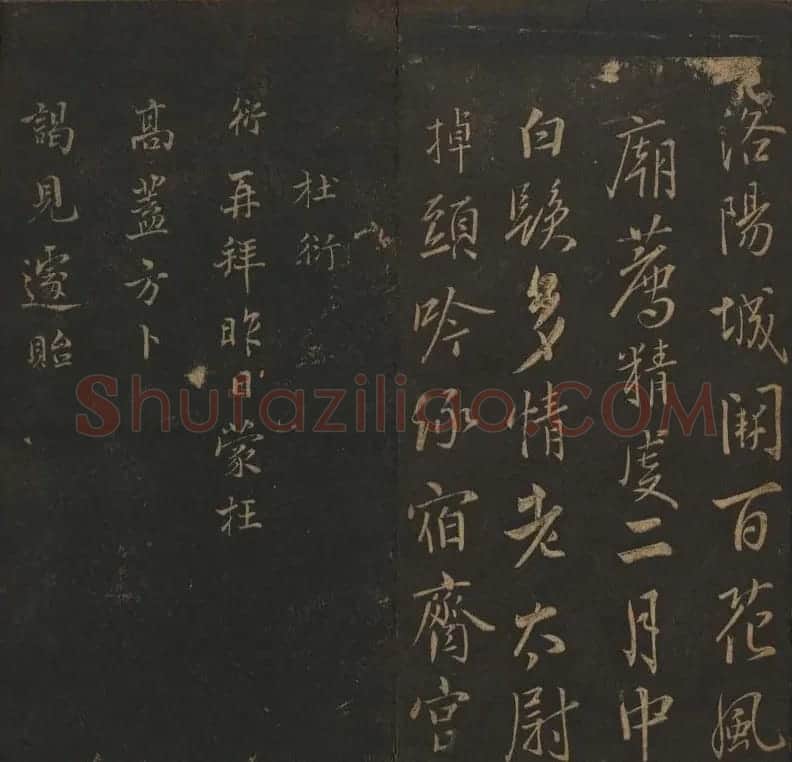 洛陽城開百花風
廟薦精虔二月中
白鬚多情老太尉
掉頭吟徹宿齋宮
杜衍
衍再拜昨日蒙枉
高蓋方卜
謁見遽貽
Shufaziliao.COM